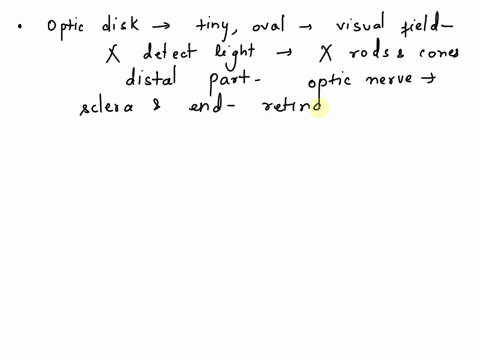 • Optic disk → tiny, oval → visual field-
X detect light → X rods & cones
distal part- optic nerve →
sclera & end- retina